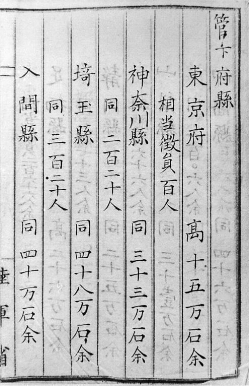 管下府縣
東京府 高十五万石余
相当徴員百人
神奈川縣 同 三十三万石余
同 二百二十人
埼玉縣 同 四十八万石余
同 三百二十人
入間縣 同 四十万石余
陸軍省